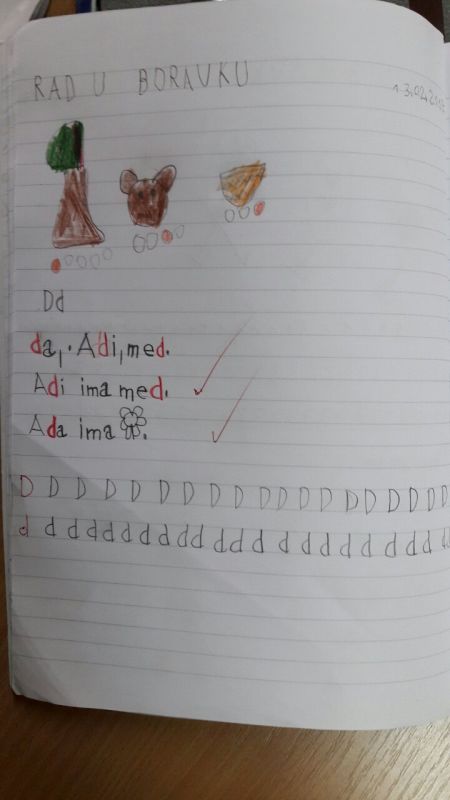 RAD U BORAVKU
Dd
da, Adi, med.
Adi ima med.
Ada ima
D D D D D D D D D D D D D D D D D D D
d d d d d d d d d d d d d d d d d d d d d